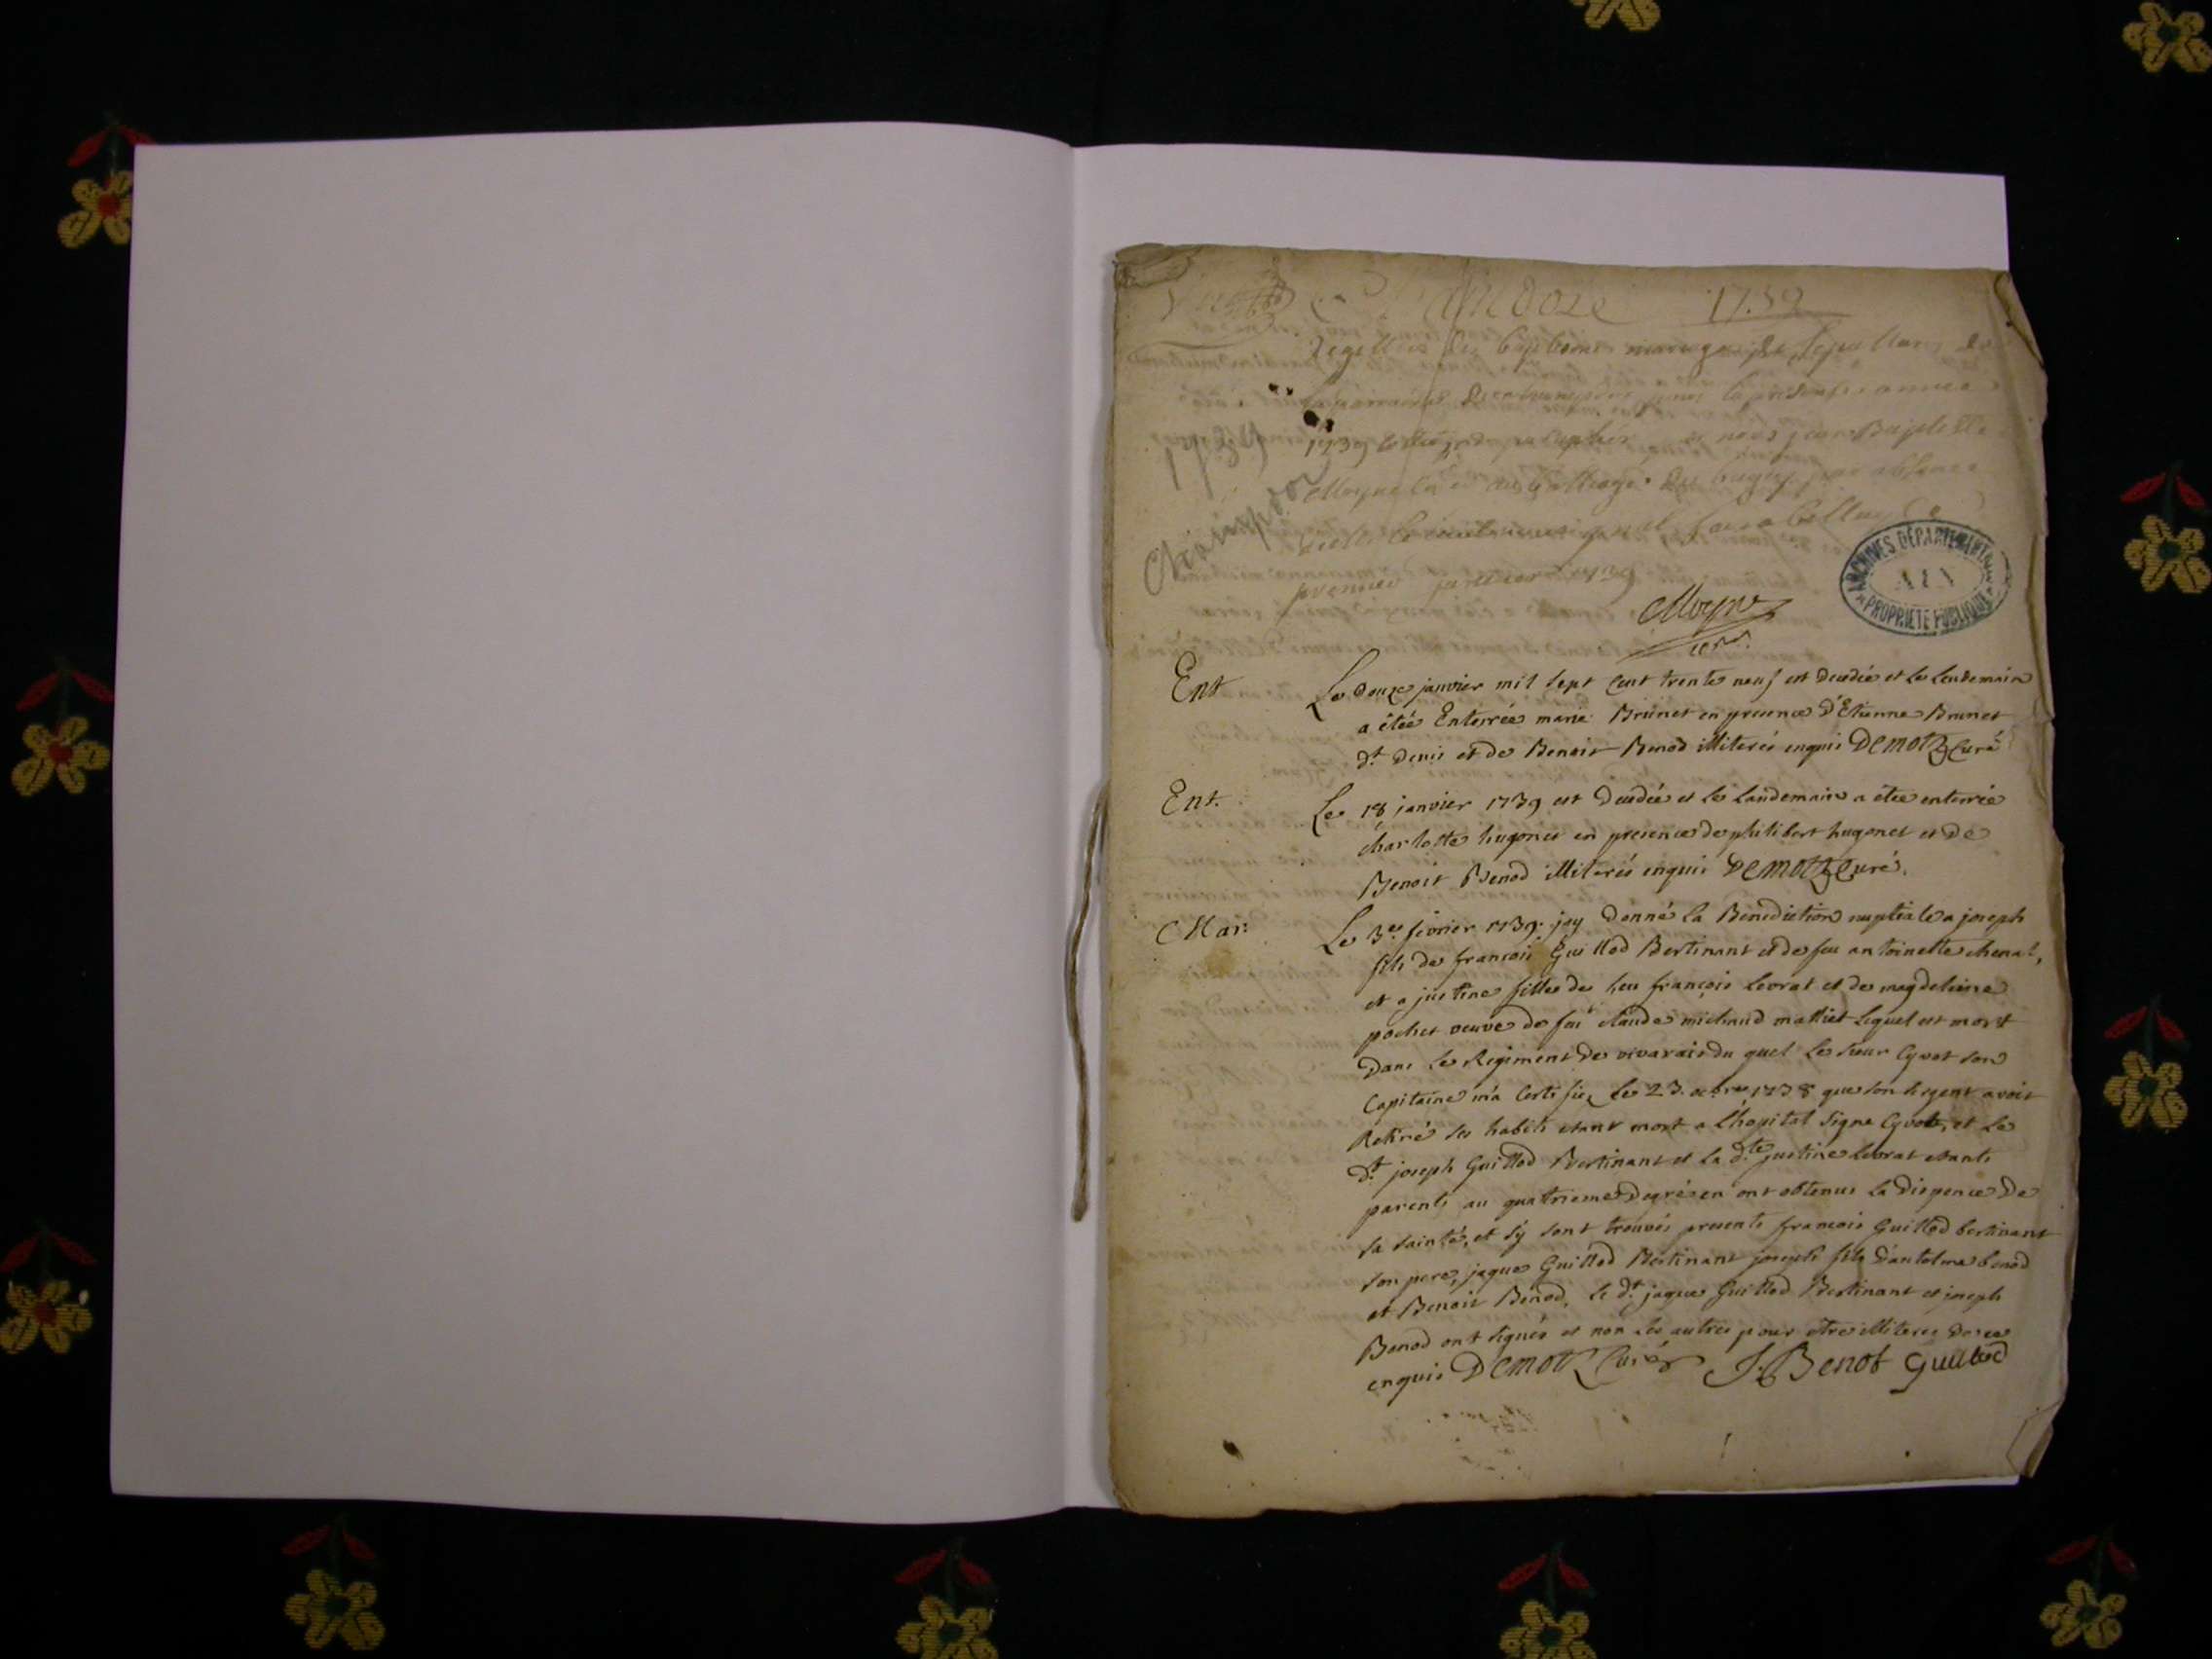 1739
Registre des baptemes mariages et sepultures de
la parroisse de pour la presente annee
1739 par nous jean Baptiste
Moyne au Balliage du bugey par absence
premier janvier 1739
1739
Champdor
Moyne
ARCHIVES DÉPARTEMENTALES
AIN
PROPRIÉTÉ PUBLIQUE
Ent Le douze janvier mil sept cent trente neuf est decedée et le lendemain
a étée Enterrée marie Brunet en presence d'Etienne Brunet
dt. denis et de Benoit Benod illiterés enquis DEMOTZ Curé
Ent. Le 18 janvier 1739 est decedée et le landemain a étee enterrée
charlotte hugonet en presence de philibert hugonet et de
Benoit Benod illiterés enquis DEMOTZ Curé.
Mar: Le 3e. février 1739. jay donné la Benediction nuptiale a joseph
fils de francois Guillod Bertinant et de feu antoinette chenal,
et a justine fille de feu françois Levrat et de magdeleine
pochet veuve de feu claude michaud mathiet lequel est mort
dans le Regiment de vivarais du quel le sieur Cyvot son
Capitaine m'a certifié, le 23. octbre 1738 que son sergent avoit
Retiré ses habits etant mort a Lhopital signe Cyvot, et le
dt. joseph Guillod Bertinant et la dte justine levrat etants
parents au quatrieme degré en ont obtenus la dispence de
sa sainteté, et sy sont trouvés presents francois Guillod bertinant
son pere, jaques Guillod Bertinant joseph fils d'antelme benod
et Benoit Benod, le dt. jaques Guillod Bertinant et joseph
Benod ont signés et non les autres pour etre illiterés de ce
enquis DEMOTZ Curé J. Benot Guillod